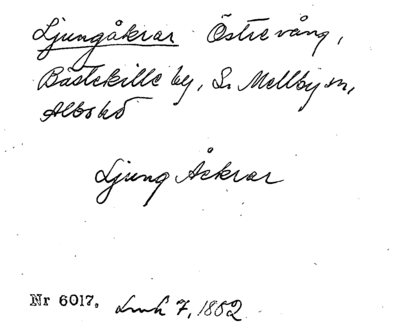 Ljungåkrar Östre vång,
Bästekille by, S. Mellby sn,
Albo hd
Ljung Åckrar
Nr 6017, Lmh 7, 1802